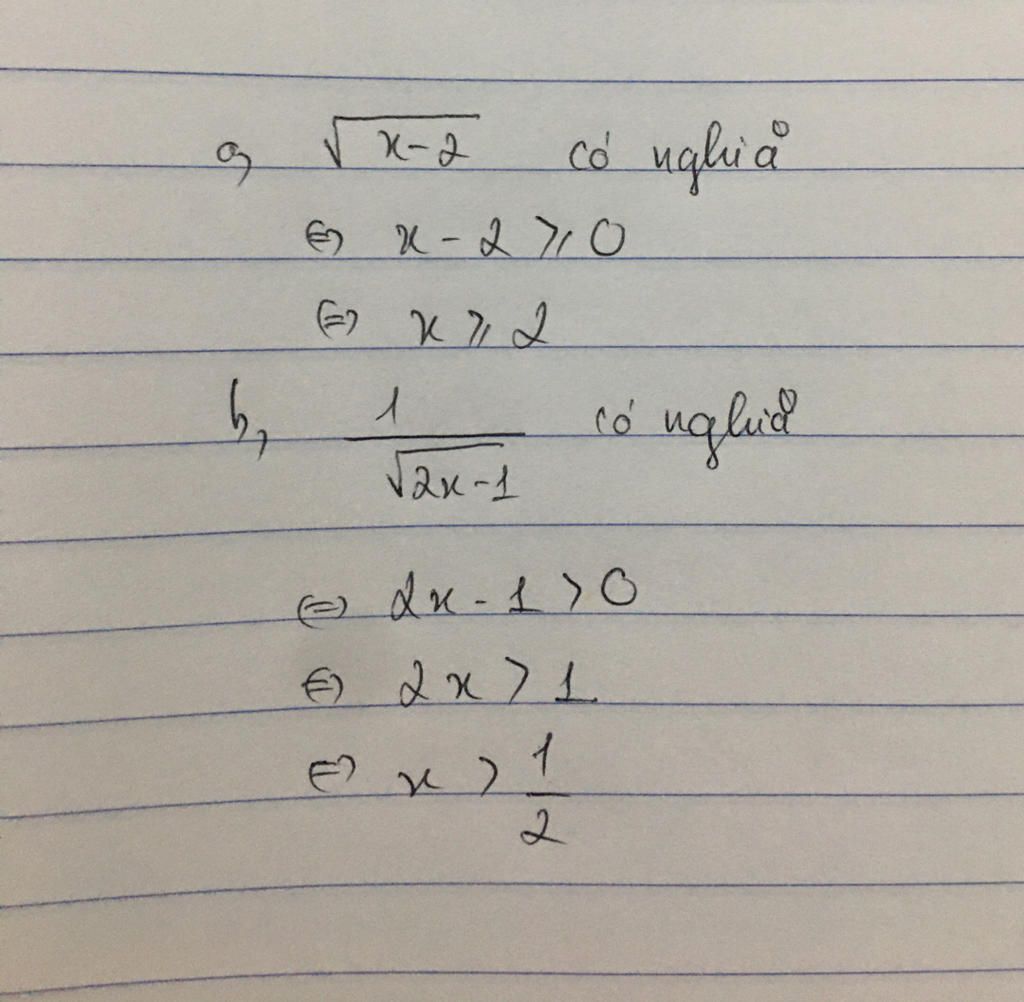 a, √(x-2) có nghĩa
⇔ x - 2 ≥ 0
⇔ x ≥ 2
b, 1/√(2x-1) có nghĩa
⇔ 2x - 1 > 0
⇔ 2x > 1
⇔ x > 1/2